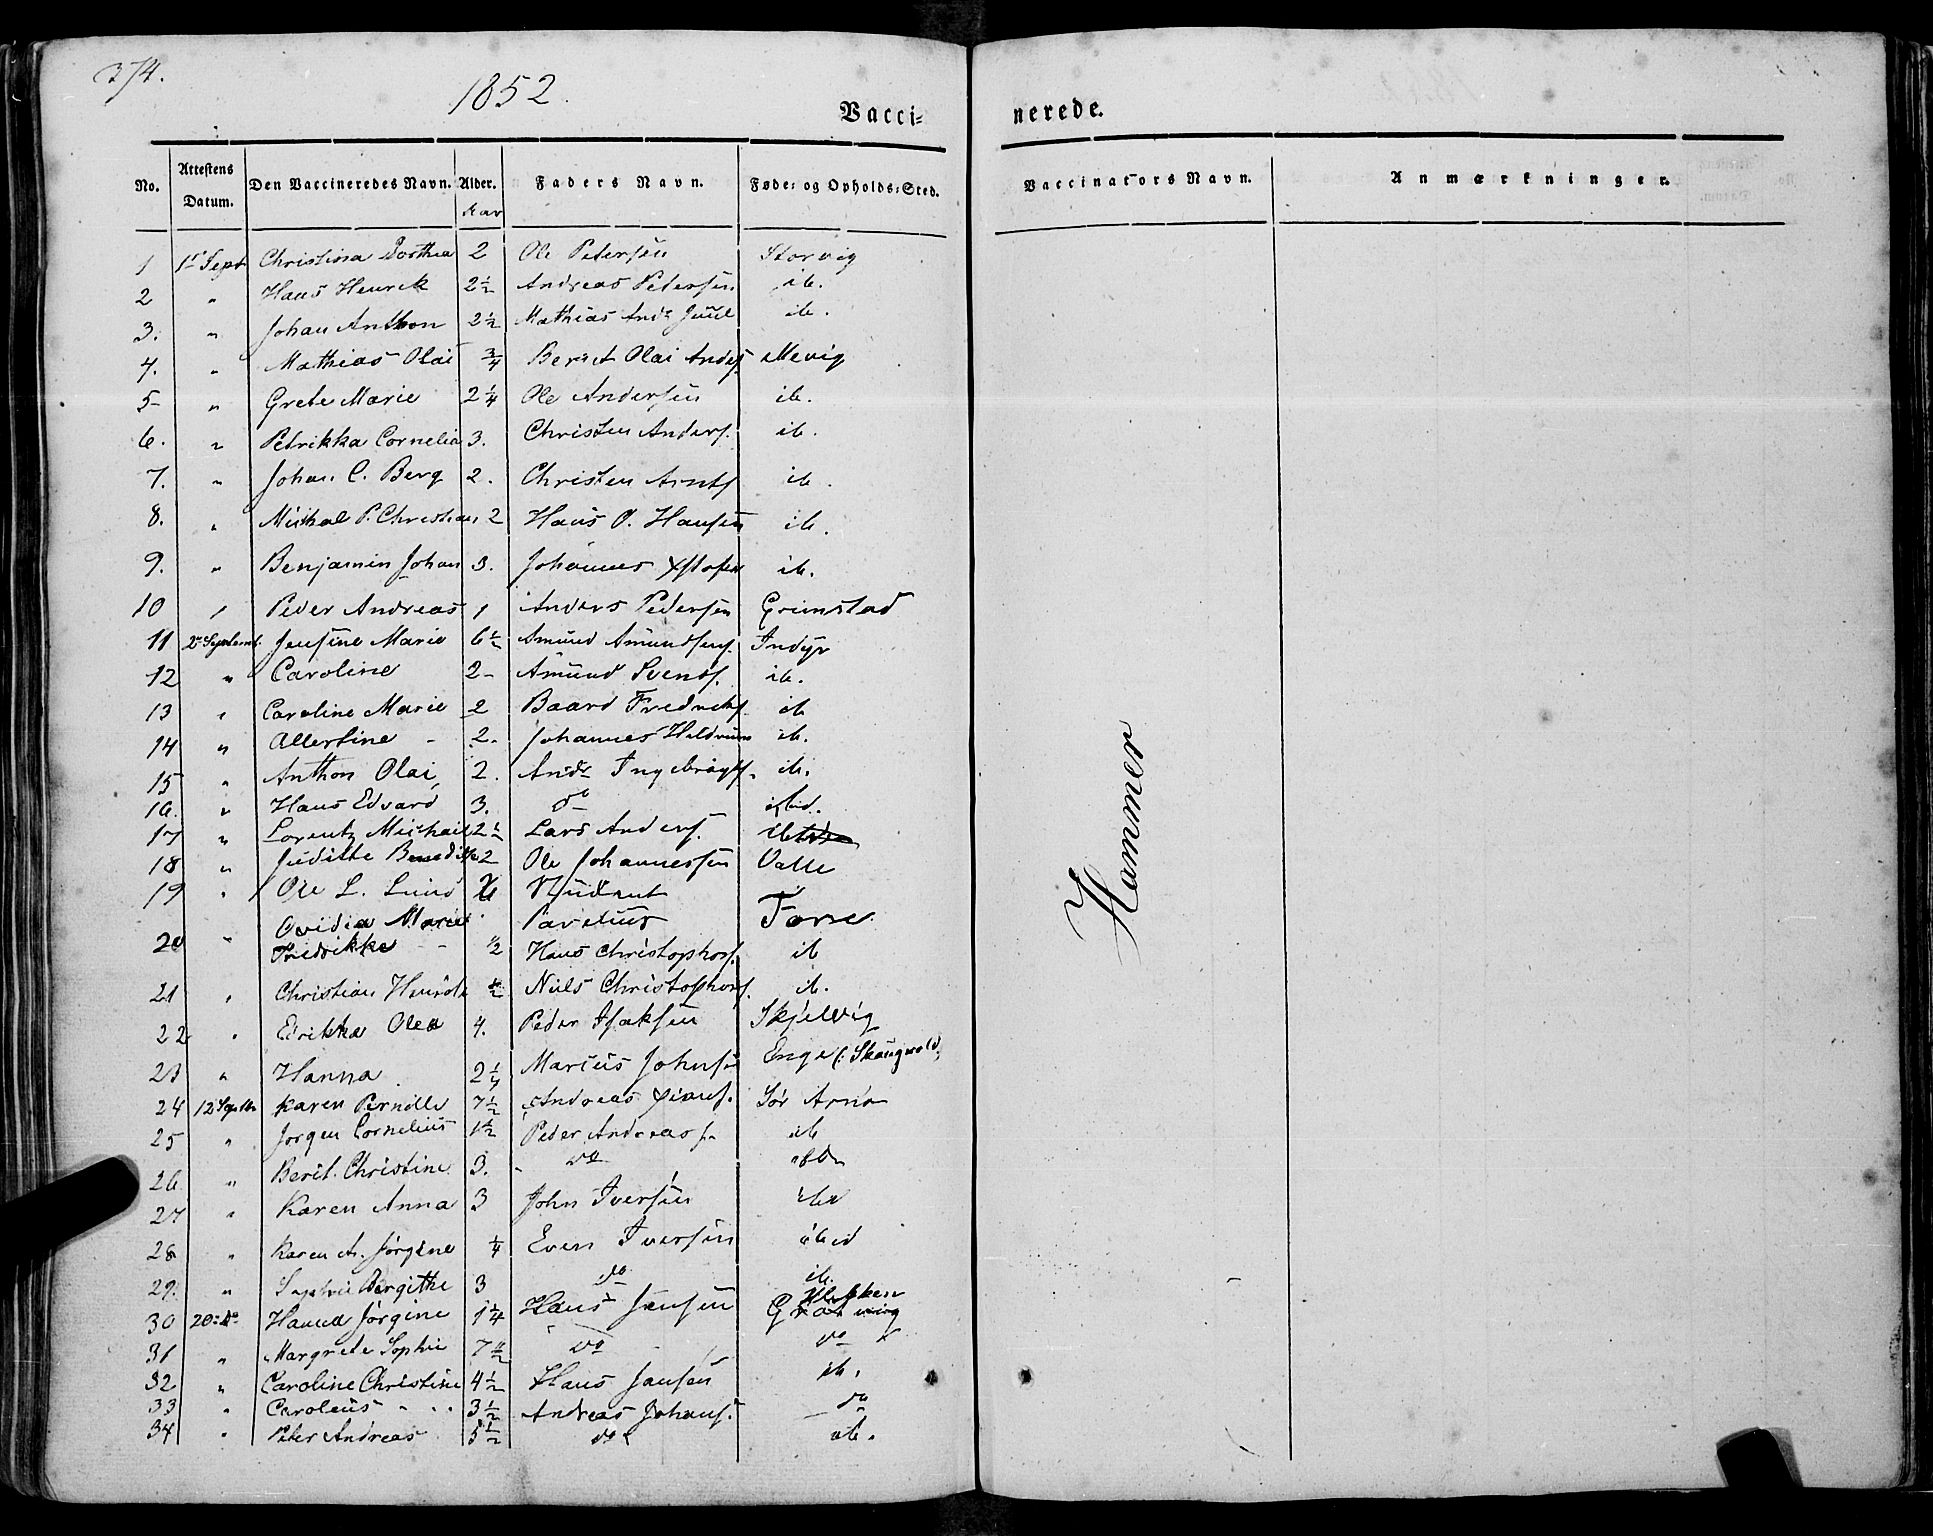 374.
1852.
Vacci-
nerede.
No. Attestens Datum. Den Vaccineredes Navn. Alder. Faders Navn. Føde- og Opholds-Sted. Vaccinators Navn. Anmærkninger.
Aar
1 1st Sept Christina Dorthea 2 Ole Petersen Storvig
2 " Hans Henrik 2 1/2 Andreas Pedersen ib.
3. " Johan Anthon 2 1/2 Mathias Andr Juul ib.
4. " Mathias Olai 3/4 Bernt Olai Anders. Mevig
5 " Grete Marie 2 1/4 Ole Andersen ib.
6. " Petrikka Cornelia 3. Christen Anders. ib.
7. " Johan C. Berg 2. Christen Arnts ib.
8. " Michal P. Christian 2 Hans O. Hansen ib.
9. " Benjamin Johan 3. Johannes Xstofers ib.
10 " Peder Andreas 1 Anders Pedersen Grimstad
11 2 Septemb. Jensine Marie 6 1/2 Amund Amundsen. Indyr
12 " Caroline 2 - Amund Svends. ib.
13 " Caroline Marie 2 Baard Fredriks. ib
14 " Allertine - 2. Johannes Hildrum ib.
15 " Anthon Olai 2. Andr Ingebrigts. ib.
16. " Hans Edvard 3. do ibid.
17 " Lorentz Michael 2 1/2 Lars Anders. ib
18 " Juditte Benedikte 2 Ole Johannessen Valle
19 " Ole L. Lund Student
Ovidia Marie Parelius Forre
20 " Fredrikke - - 1/2 Hans Christophers. ib
21 " Christian Henrik 1/2 Niels Christophers. ib.
22 " Erikka Olea 4. Peder Isaksen Skjelvig
23 " Hanna 2 1/4 Marius Johnsen Enge (: Skaugvold
24 12 Septbr Karen Pernille 7 1/2 Andreas Xians. Sør Arnø
25 " Jørgen Cornelius 1 1/2 Peder Andreass. ib
26 " Berit Christine 3. do
27 " Karen Anna 3 John Iversen ibd
28 " Karen A. Jørgine 1/4 Even Iversen ibid
29. " Sophie Bergithe 3 do ib.
30 20 do Hanna Jørgine 1 1/4 Hans Jensen
31 " Margrete Sophie 7 1/2 do do
32 " Caroline Christine 4 1/2 Hans Jansen ib.
33 " Caroleus - - - 3 1/2 Andreas Johans. do
34 " Peter Andreas 5 1/2 do ib.
Hammer